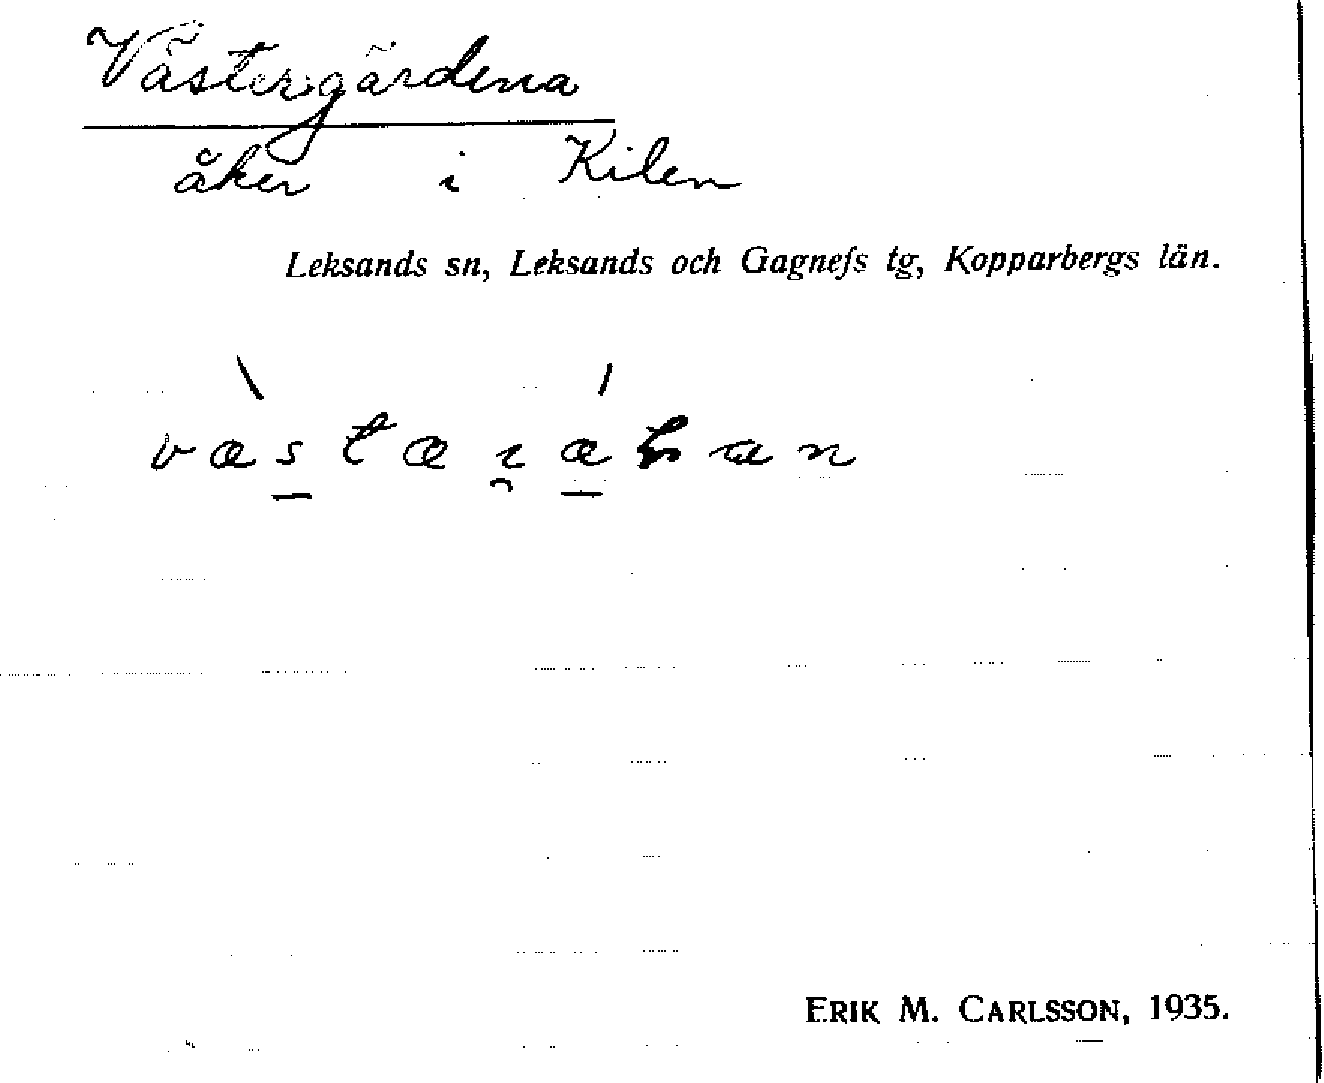 Västergärdena
åker i Kilen
Leksands sn, Leksands och Gagnefs tg, Kopparbergs län.
ERIK M. CARLSSON, 1935.